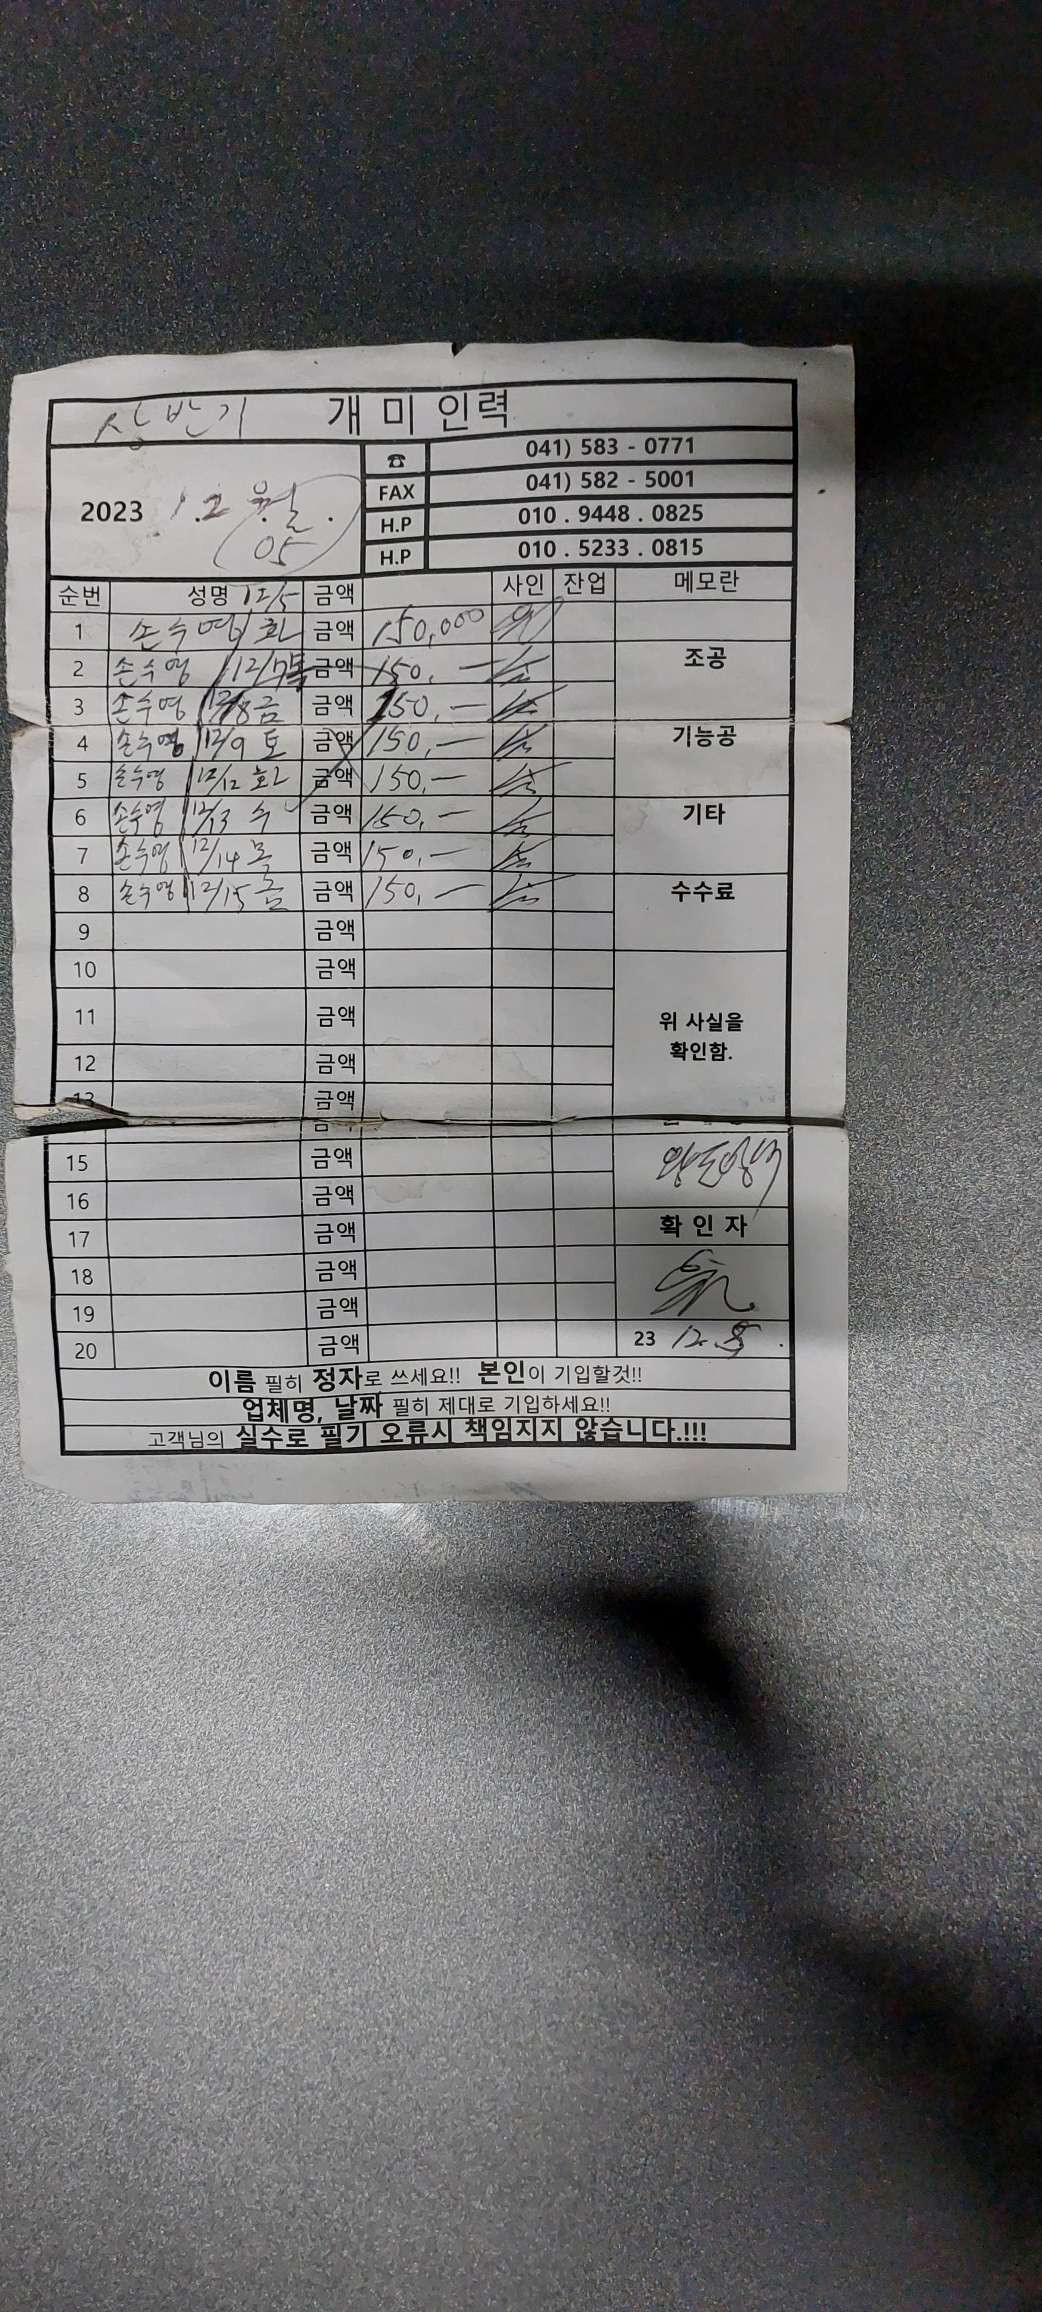 상반기 개 미 인 력
☎ 041) 583 - 0771
FAX 041) 582 - 5001
2023 . 12 월 .
05
H.P 010 . 9448 . 0825
H.P 010 . 5233 . 0815
순번 성명 12/5 금액 사인 잔업 메모란
1 손수영 화 금액 150,000
2 손수영 12/7 목 금액 150,- 손 조공
3 손수영 12/8 금 금액 150,- 손
4 손수영 12/9 토 금액 150,- 손 기능공
5 손수영 12/12 화 금액 150,- 손
6 손수영 12/13 수 금액 150,- 손 기타
7 손수영 12/14 목 금액 150,- 손
8 손수영 12/15 금 금액 150,- 손 수수료
9 금액
10 금액
11 금액 위 사실을
확인함.
12 금액
13 금액
금액
15 금액
16 금액
17 금액 확 인 자
18 금액
19 금액
20 금액 23 12.
이름 필히 정자로 쓰세요!! 본인이 기입할것!!
업체명, 날짜 필히 제대로 기입하세요!!
고객님의 실수로 필기 오류시 책임지지 않습니다.!!!